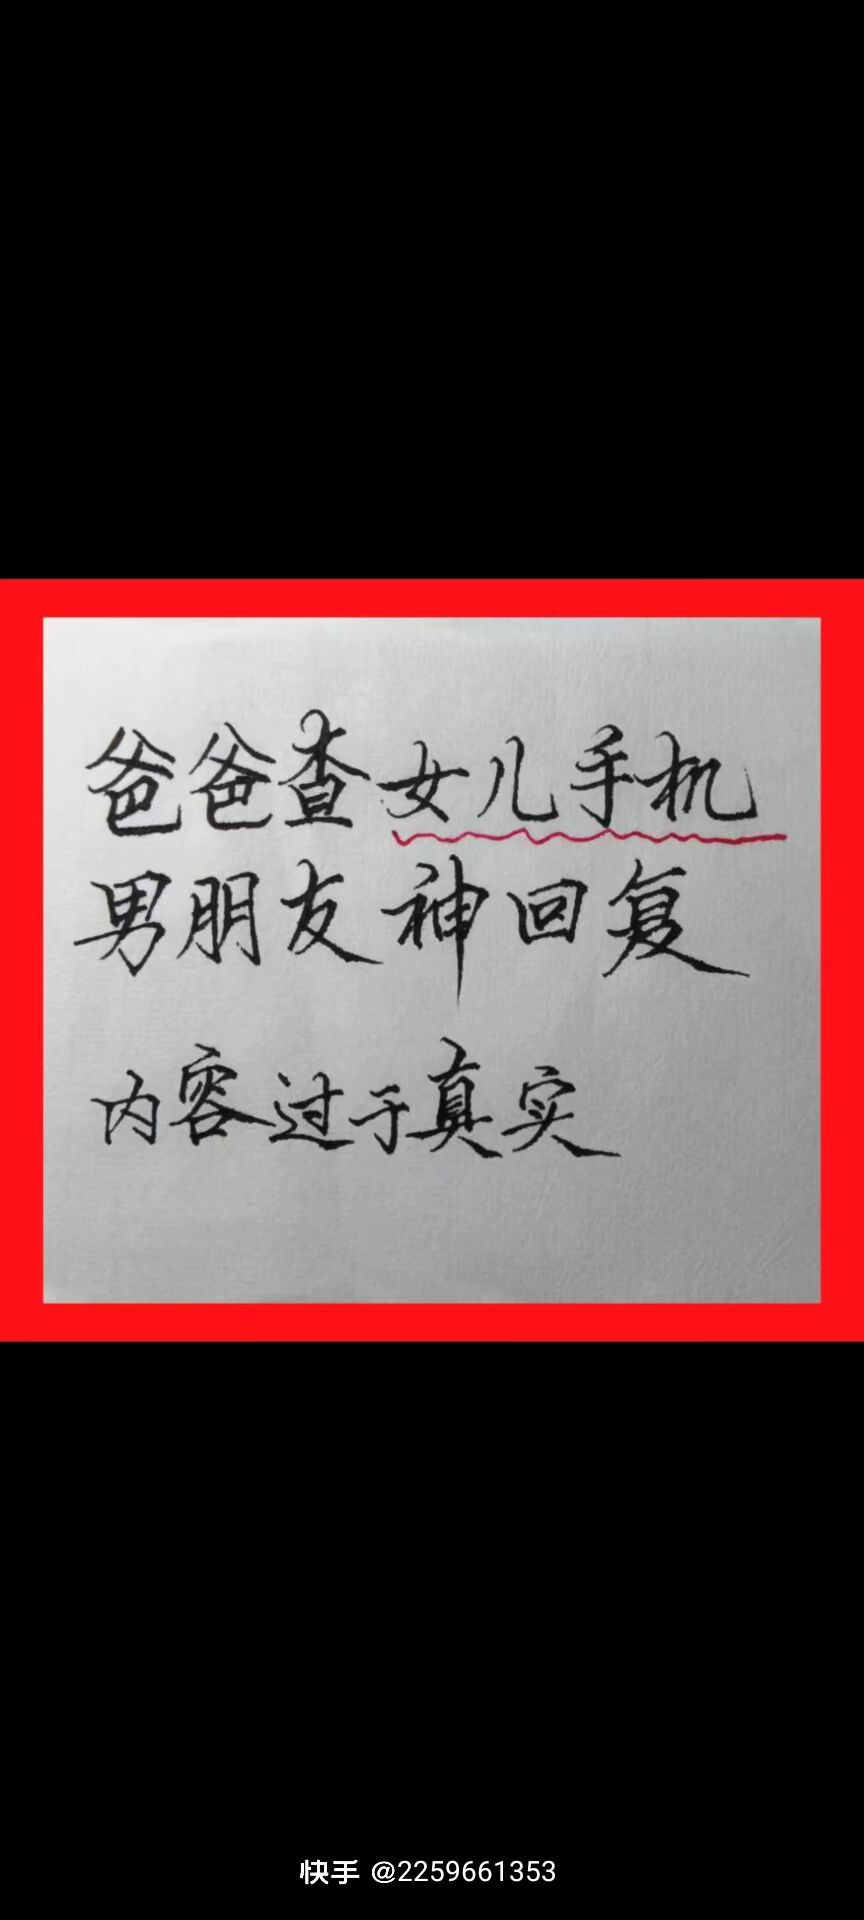 爸爸查女儿手机
男朋友神回复
内容过于真实
快手 @2259661353